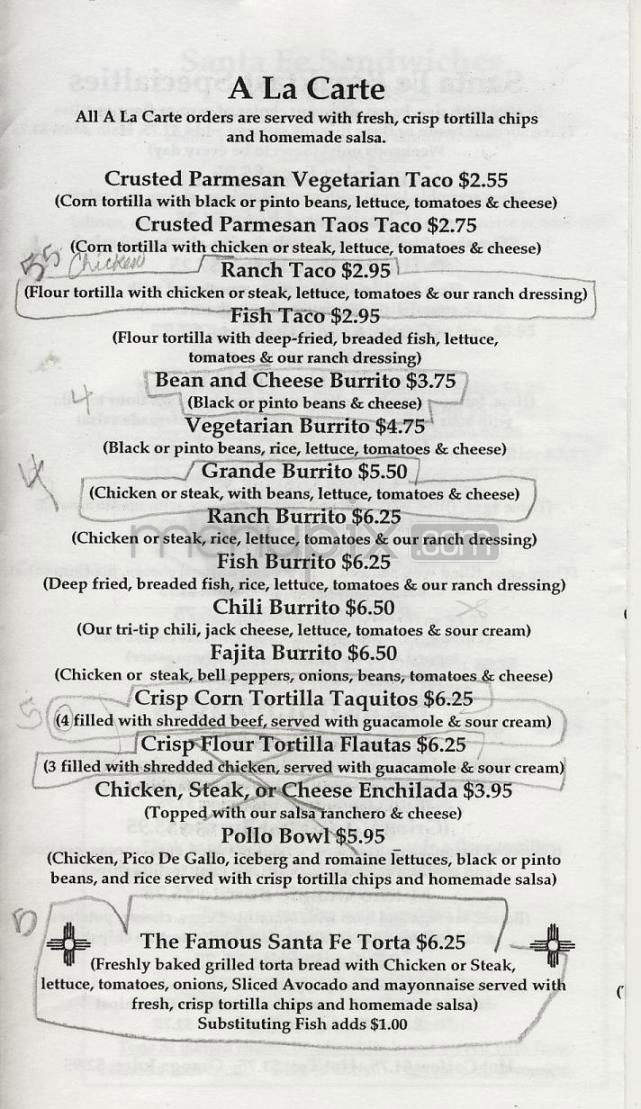 A La Carte
All A La Carte orders are served with fresh, crisp tortilla chips
and homemade salsa.
Crusted Parmesan Vegetarian Taco $2.55
(Corn tortilla with black or pinto beans, lettuce, tomatoes & cheese)
Crusted Parmesan Taos Taco $2.75
(Corn tortilla with chicken or steak, lettuce, tomatoes & cheese)
Chicken
Ranch Taco $2.95
(Flour tortilla with chicken or steak, lettuce, tomatoes & our ranch dressing)
Fish Taco $2.95
(Flour tortilla with deep-fried, breaded fish, lettuce,
tomatoes & our ranch dressing)
Bean and Cheese Burrito $3.75
4
(Black or pinto beans & cheese)
Vegetarian Burrito $4.75
(Black or pinto beans, rice, lettuce, tomatoes & cheese)
Grande Burrito $5.50
4
(Chicken or steak, with beans, lettuce, tomatoes & cheese)
Ranch Burrito $6.25
(Chicken or steak, rice, lettuce, tomatoes & our ranch dressing)
menupix.com
Fish Burrito $6.25
(Deep fried, breaded fish, rice, lettuce, tomatoes & our ranch dressing)
Chili Burrito $6.50
(Our tri-tip chili, jack cheese, lettuce, tomatoes & sour cream)
Fajita Burrito $6.50
(Chicken or steak, bell peppers, onions, beans, tomatoes & cheese)
Crisp Corn Tortilla Taquitos $6.25
5
(4 filled with shredded beef, served with guacamole & sour cream)
Crisp Flour Tortilla Flautas $6.25
(3 filled with shredded chicken, served with guacamole & sour cream)
Chicken, Steak, or Cheese Enchilada $3.95
(Topped with our salsa ranchero & cheese)
Pollo Bowl $5.95
(Chicken, Pico De Gallo, iceberg and romaine lettuces, black or pinto
beans, and rice served with crisp tortilla chips and homemade salsa)
The Famous Santa Fe Torta $6.25
(Freshly baked grilled torta bread with Chicken or Steak,
lettuce, tomatoes, onions, Sliced Avocado and mayonnaise served with
fresh, crisp tortilla chips and homemade salsa)
Substituting Fish adds $1.00